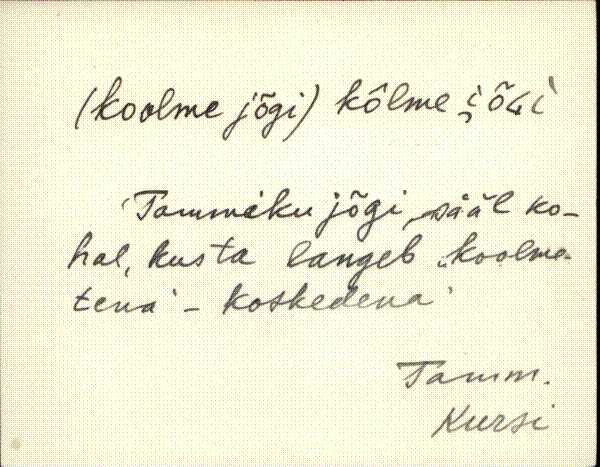 (koolme jõgi) kôlme jõGi
Tammeku jõgi, sääl ko-
hal, kus ta langeb „koolme-
tena" - koskedena"
Tamm.
Kursi